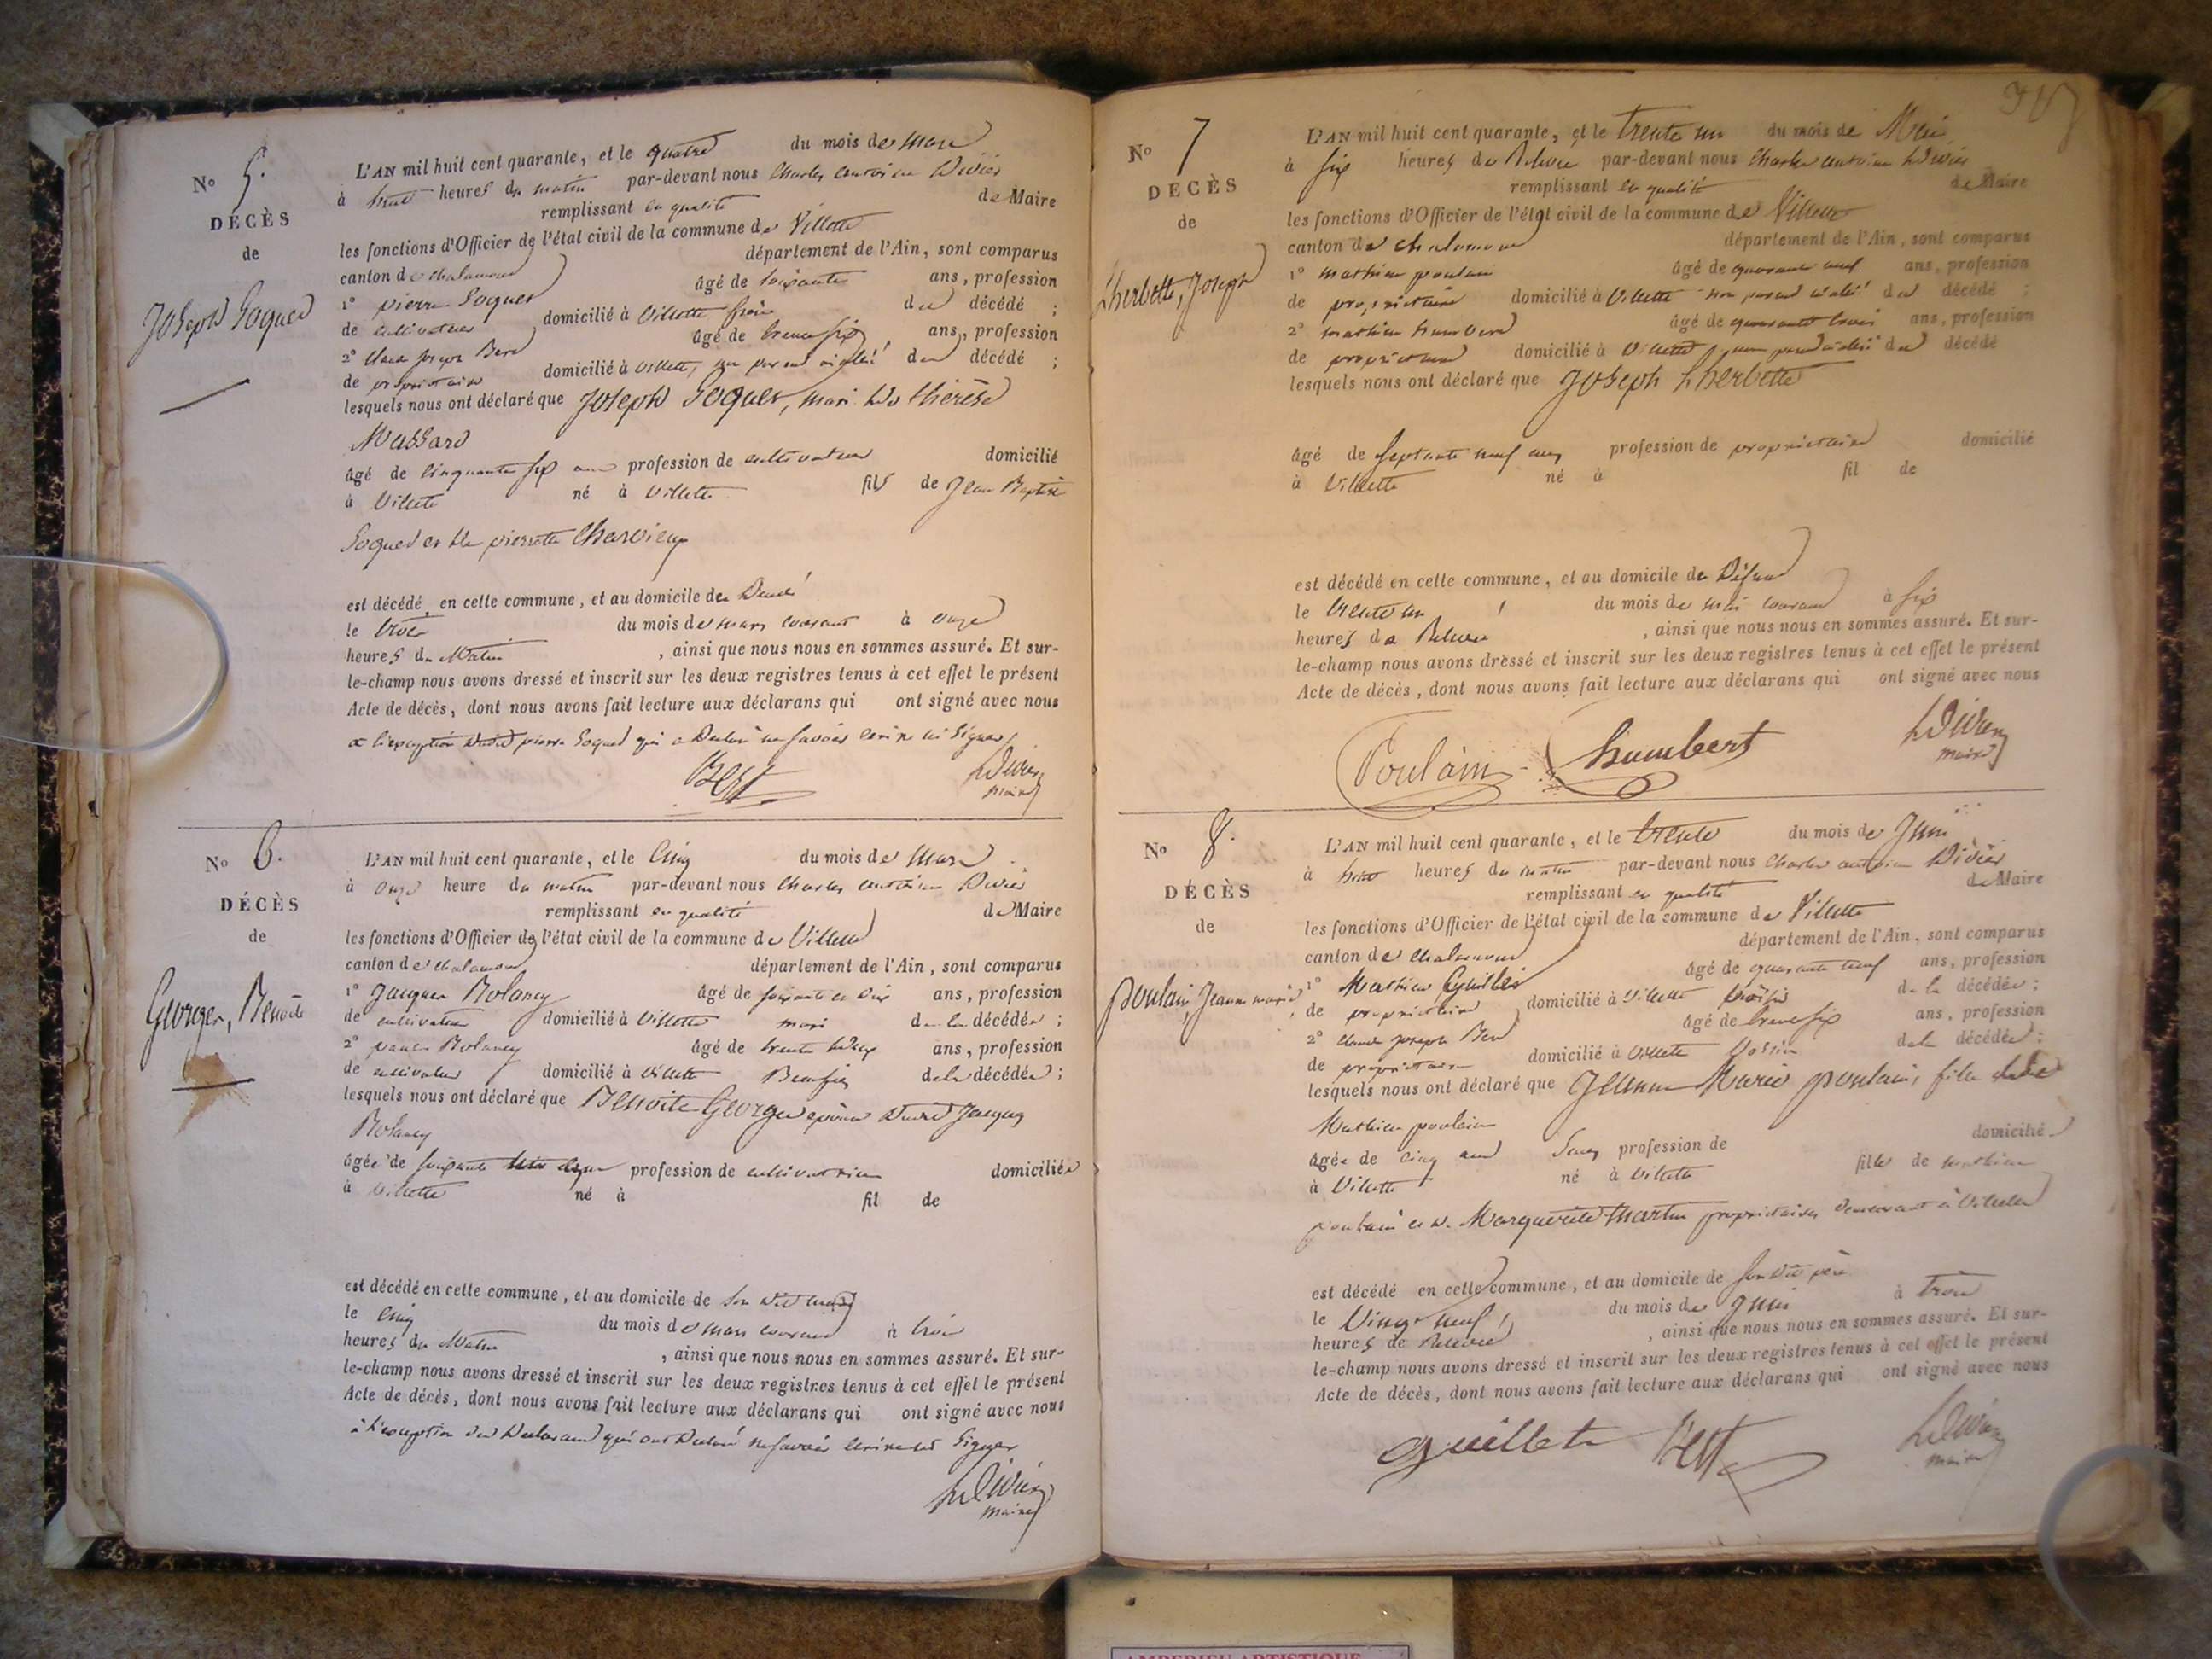 No 5.
DÉCÈS
de
Joseph Goques
L'AN mil huit cent quarante, et le quatre du mois de Mars
à huit heures du matin par-devant nous Charles antoine Divier
remplissant en qualité de Maire
les fonctions d'Officier de l'état civil de la commune de Villette
canton de chalamont département de l'Ain, sont comparus
1° pierre Goques âgé de soixante ans, profession
de cultivateur domicilié à Villette frère du décédé ;
2° Claude joseph Best âgé de trente six ans, profession
de propriétaire domicilié à Villette, non parent ni allié du décédé ;
lesquels nous ont déclaré que Joseph Goques, mari de thérèse
Massard
âgé de cinquante six ans profession de cultivateur domicilié
à Villette né à Villette fils de Jean Baptiste
Goques et de pierrette Charvieux
est décédé en cette commune, et au domicile de
le trois du mois de mars courant à onze
heures du Matin , ainsi que nous nous en sommes assuré. Et sur-
le-champ nous avons dressé et inscrit sur les deux registres tenus à cet effet le présent
Acte de décès, dont nous avons fait lecture aux déclarans qui ont signé avec nous
à l'exception dudit pierre Goques qui a Déclaré ne savoir écrire ni Signer
Best Divier
maire
No 6.
DÉCÈS
de
Georges, Benoite
L'AN mil huit cent quarante, et le cinq du mois de Mars
à onze heure du matin par-devant nous Charles antoine Divier
remplissant en qualité de Maire
les fonctions d'Officier de l'état civil de la commune de Villette
canton de chalamont département de l'Ain, sont comparus
1° Jacques Bolancy âgé de soixante et dix ans, profession
de cultivateur domicilié à Villette mari de la décédée ;
2° Bolancy âgé de trente deux ans, profession
de cultivateur domicilié à Villette Beaufils de la décédée ;
lesquels nous ont déclaré que Benoite Georges épouse dudit Jacques
Bolancy
âgée de soixante profession de cultivatrice domiciliée
à Villette né à fil de
est décédé en cette commune, et au domicile de son dit mari
le cinq du mois de mars courant à trois
heures du Matin , ainsi que nous nous en sommes assuré. Et sur-
le-champ nous avons dressé et inscrit sur les deux registres tenus à cet effet le présent
Acte de décès, dont nous avons fait lecture aux déclarans qui ont signé avec nous
à l'exception des Déclarans qui ont Déclaré ne savoir écrire ni Signer
Divier
maire
No 7
DÉCÈS
de
Lherbette, Joseph
L'AN mil huit cent quarante, et le trente un du mois de Mai
à six heures de Relevée par-devant nous Charles antoine Divier
remplissant en qualité de Maire
les fonctions d'Officier de l'état civil de la commune de Villette
canton de chalamont département de l'Ain, sont comparus
1° mathieu poulain âgé de quarante neuf ans, profession
de propriétaire domicilié à Villette non parent ni allié du décédé ;
2° mathieu humbert âgé de quarante trois ans, profession
de propriétaire domicilié à Villette, non parent ni allié du décédé
lesquels nous ont déclaré que Joseph Lherbette
âgé de septante neuf ans profession de propriétaire domicilié
à Villette né à fil de
est décédé en cette commune, et au domicile du Défunt
le trente un du mois de mai courant à six
heures de Relevée , ainsi que nous nous en sommes assuré. Et sur-
le-champ nous avons dressé et inscrit sur les deux registres tenus à cet effet le présent
Acte de décès, dont nous avons fait lecture aux déclarans qui ont signé avec nous
Poulain humbert Divier
maire
No 8.
DÉCÈS
de
poulain, Jeanne marie
L'AN mil huit cent quarante, et le trente du mois de Juin
à huit heures du matin par-devant nous Charles antoine Divier
remplissant en qualité de Maire
les fonctions d'Officier de l'état civil de la commune de Villette
canton de chalamont département de l'Ain, sont comparus
1° Mathieu Guillet âgé de quarante neuf ans, profession
de propriétaire domicilié à Villette voisin de la décédée ;
2° Claude joseph Best âgé de trente six ans, profession
de propriétaire domicilié à Villette Voisin de la décédée ;
lesquels nous ont déclaré que Jeanne Marie poulain, fille de
Mathieu poulain
âgée de cinq ans Sans profession de domicilié
à Villette né à Villette fille de mathieu
poulain et de Marguerite Martin propriétaires demeurant à Villette
est décédé en cette commune, et au domicile de son dit père
le Vingt neuf du mois de Juin à trois
heures de Relevée , ainsi que nous nous en sommes assuré. Et sur-
le-champ nous avons dressé et inscrit sur les deux registres tenus à cet effet le présent
Acte de décès, dont nous avons fait lecture aux déclarans qui ont signé avec nous
guillet Best Divier
maire
AMBERIEU ARTISTIQUE